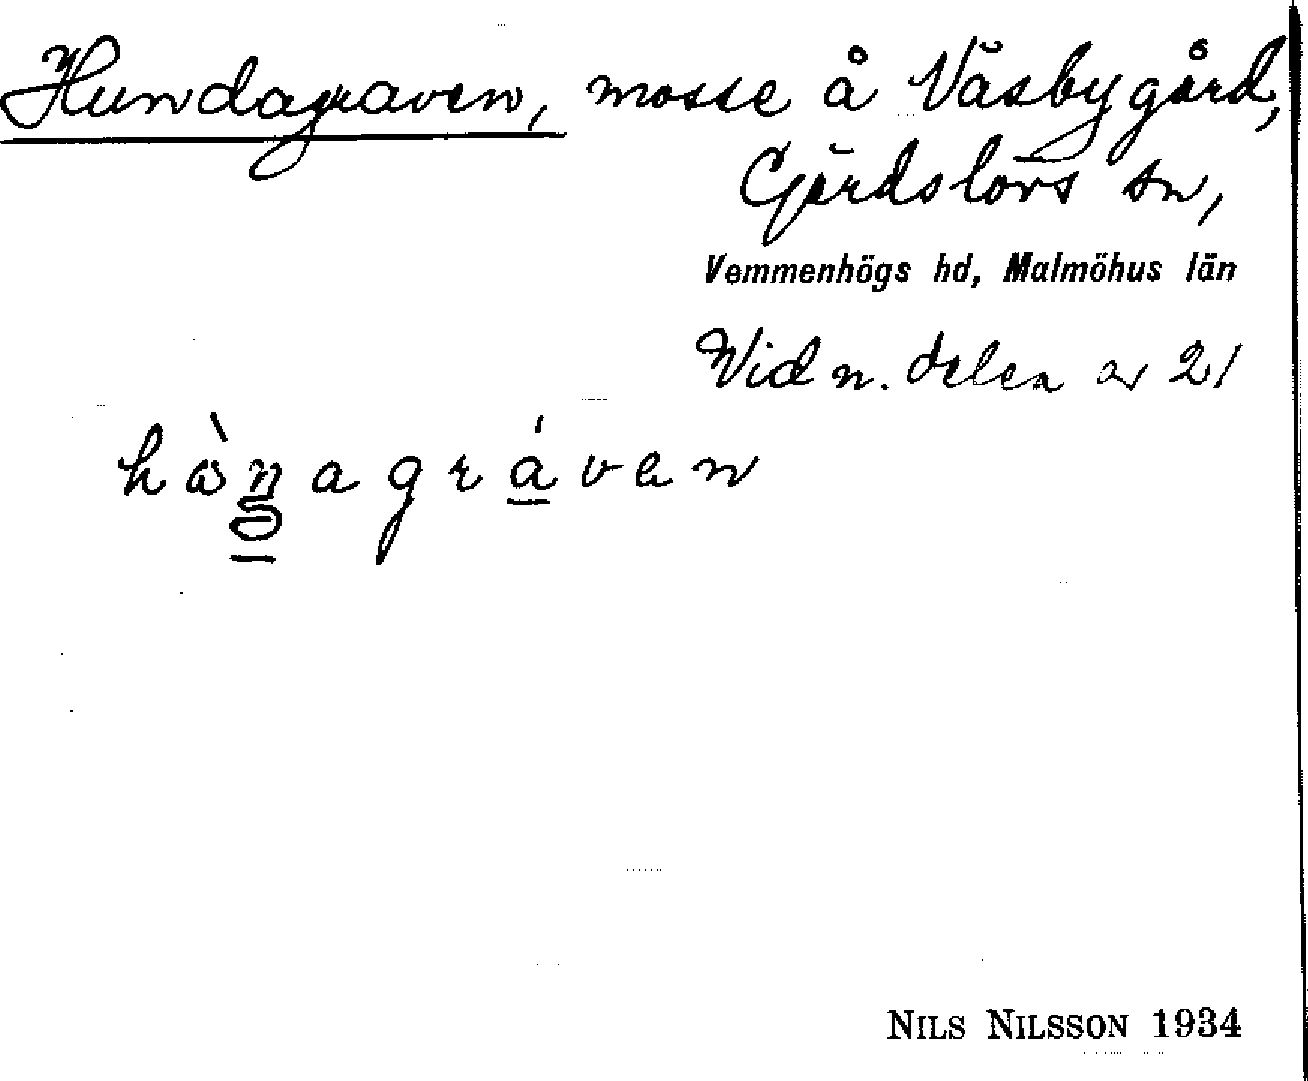 Hundagraven, mosse å Väsbygård,
Gärdslövs sn,
Vemmenhögs hd, Malmöhus län
Vid n. delen av 21
hùn̥agráven
NILS NILSSON 1934